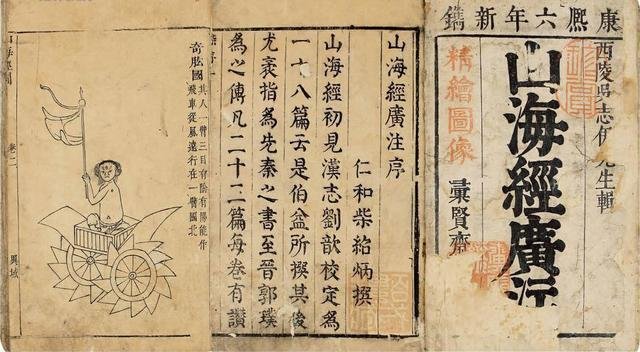 康熙六年新鐫
西陵吳志伊先生輯
山海經廣注
精繪圖像
彙賢齋
山海經廣注序
仁和柴紹炳撰
山海經初見漢志劉歆校定為
一十八篇云是伯益所撰其後
尤袤指為先秦之書至晉郭璞
為之傳凡二十三篇每卷有讚
奇肱國
其人一臂三目有陰有陽能作
飛車從風遠行在一臂國北
卷二
異域